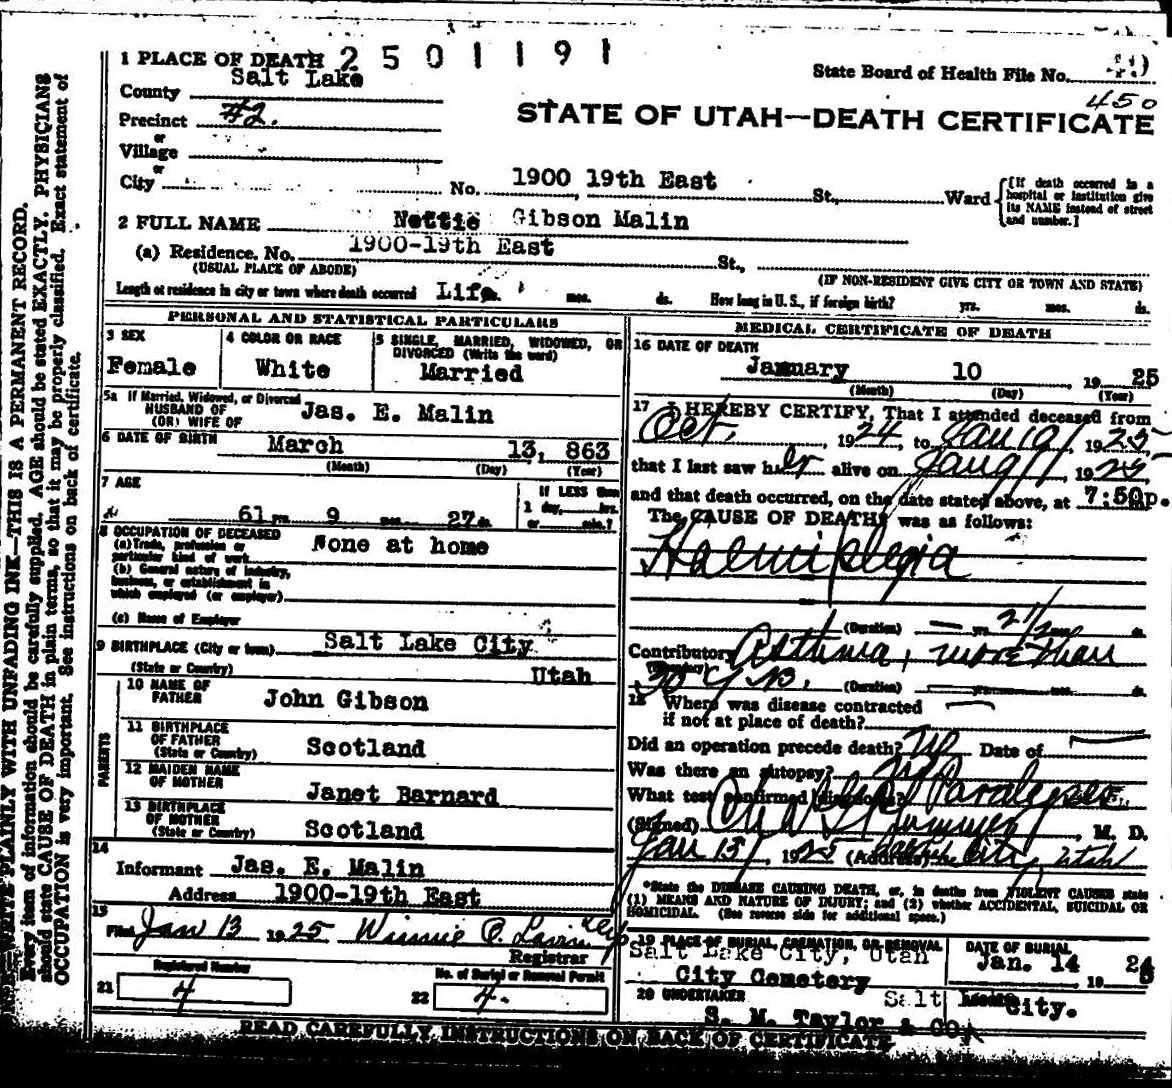 1 PLACE OF DEATH 2 5 0 1 1 9 1
State Board of Health File No.
450
County Salt Lake
STATE OF UTAH—DEATH CERTIFICATE
Precinct #2.
or
Village
or
City No. 1900 19th East St., Ward
{[If death occurred in a hospital or institution give its NAME instead of street and number.]
2 FULL NAME Nettie Gibson Malin
(a) Residence. No. 1900-19th East St.,
(USUAL PLACE OF ABODE) (IF NON-RESIDENT GIVE CITY OR TOWN AND STATE)
Length of residence in city or town where death occurred Life. mos. ds. How long in U. S., if foreign birth? yrs. mos. ds.
PERSONAL AND STATISTICAL PARTICULARS
3 SEX Female
4 COLOR OR RACE White
5 SINGLE, MARRIED, WIDOWED, OR DIVORCED (Write the word) Married
5a If Married, Widowed, or Divorced
HUSBAND OF
(OR) WIFE OF Jas. E. Malin
6 DATE OF BIRTH March 13, 863
(Month) (Day) (Year)
7 AGE 61 yrs. 9 mos. 27 ds.
If LESS than
1 day, hrs.
or min.?
8 OCCUPATION OF DECEASED
(a) Trade, profession or
particular kind of work None at home
(b) General nature of industry,
business, or establishment in
which employed (or employer)
(c) Name of Employer
9 BIRTHPLACE (City or town) Salt Lake City
(State or Country) Utah
PARENTS
10 NAME OF
FATHER John Gibson
11 BIRTHPLACE
OF FATHER
(State or Country) Scotland
12 MAIDEN NAME
OF MOTHER Janet Barnard
13 BIRTHPLACE
OF MOTHER
(State or Country) Scotland
14
Informant Jas. E. Malin
Address 1900-19th East
15
Filed Jan 13 1925 Winnie P.
Registrar
Registered Number
21 4
No. of Burial or Removal Permit
22 4.
MEDICAL CERTIFICATE OF DEATH
16 DATE OF DEATH
January 10, 19 25
(Month) (Day) (Year)
17 I HEREBY CERTIFY, That I attended deceased from
Oct, 1924 to Jan 10, 1925
that I last saw her alive on 1925
and that death occurred, on the date stated above, at 7:50p.
The CAUSE OF DEATH was as follows:
Haemiplegia
(Duration) yrs. ds.
Contributory Asthma, more than
30 (Duration)
18 Where was disease contracted
if not at place of death?
Did an operation precede death? No Date of
Was there an autopsy? No
What test confirmed diagnosis? Paralysis
(Signed) , M. D.
Jan 13, 1925 (Address) City, Utah
*State the DISEASE CAUSING DEATH, or, in deaths from VIOLENT CAUSES state
(1) MEANS AND NATURE OF INJURY; and (2) whether ACCIDENTAL, SUICIDAL OR
HOMICIDAL. (See reverse side for additional space.)
19 PLACE OF BURIAL, CREMATION, OR REMOVAL
Salt Lake City, Utah
City Cemetery
DATE OF BURIAL
Jan. 14 19
20 UNDERTAKER
Salt City.
S. M. Taylor & CO
READ CAREFULLY INSTRUCTIONS ON BACK OF CERTIFICATE
WRITE PLAINLY WITH UNFADING INK—THIS IS A PERMANENT RECORD.
Every item of information should be carefully supplied. AGE should be stated EXACTLY. PHYSICIANS
should state CAUSE OF DEATH in plain terms, so that it may be properly classified. Exact statement of
OCCUPATION is very important. See instructions on back of certificate.